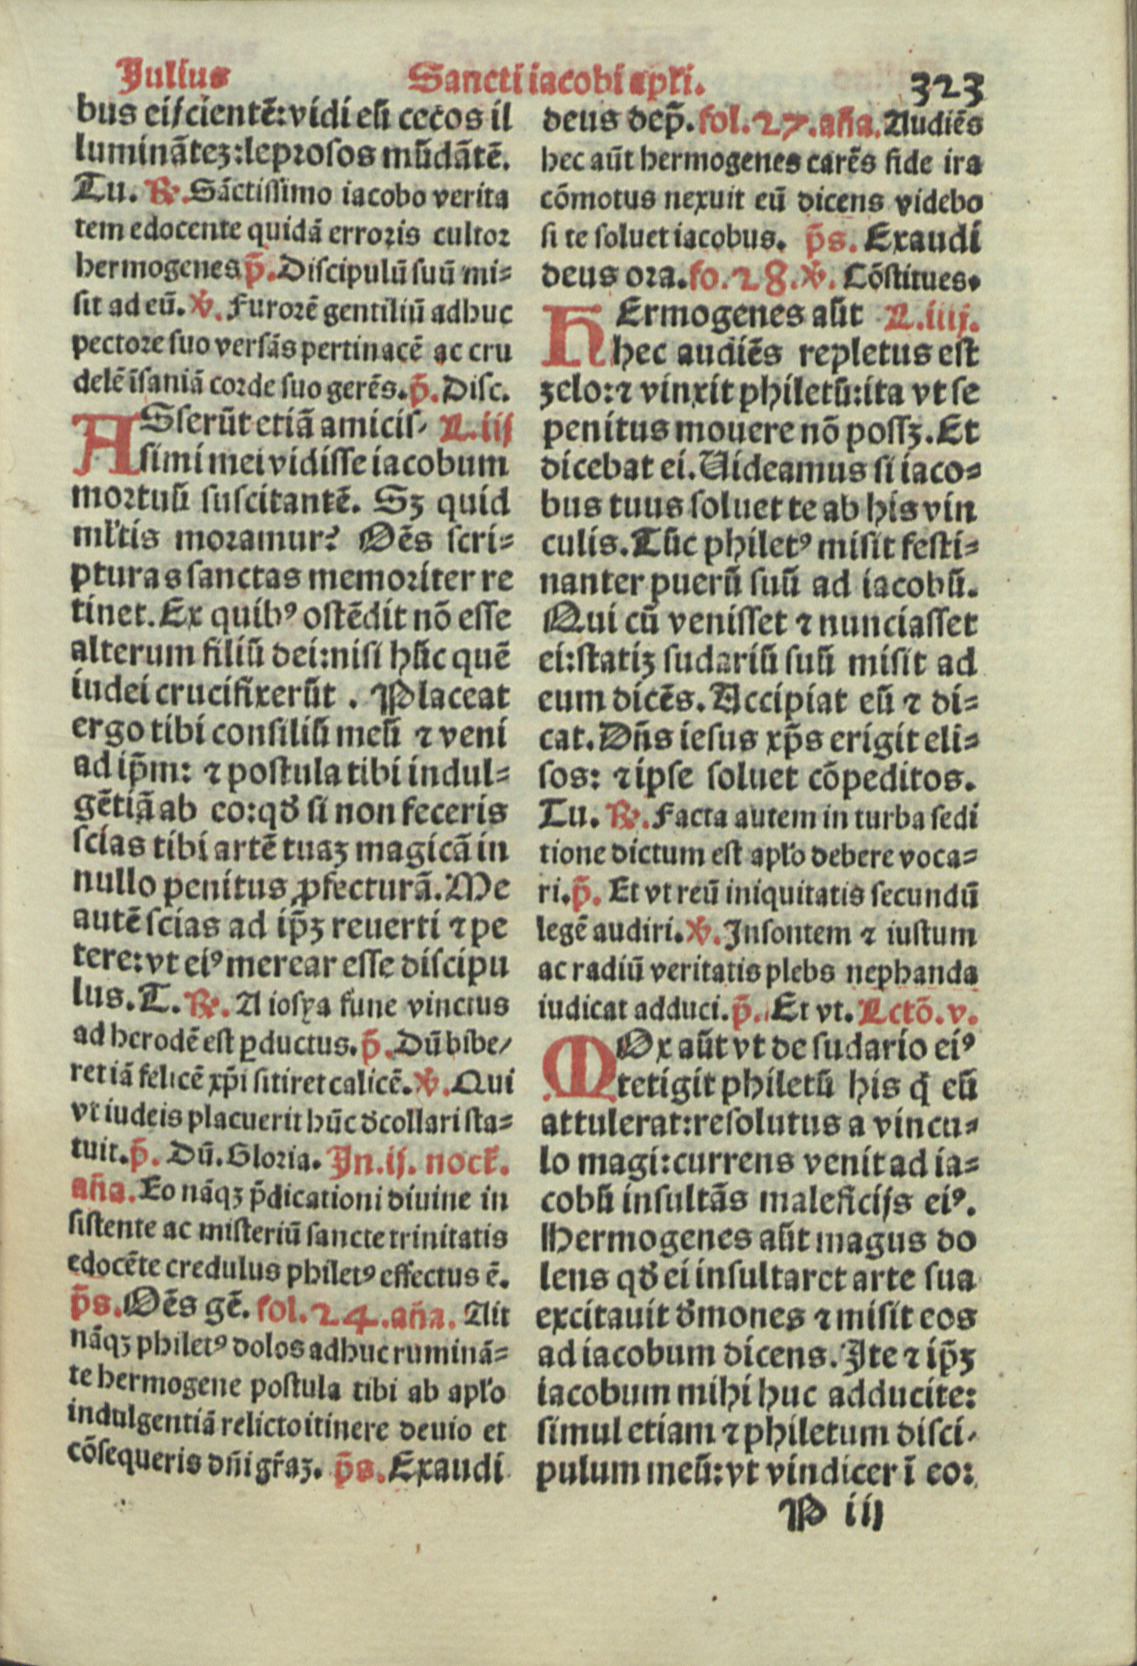 Julius
Sancti iacobi apłi.
323
bus eijcientē: vidi eū cecos il
luminātez: leprosos mūdātē.
Tu. ℟. Sāctissimo iacobo verita
tem edocente quidā erroris cultor
hermogenes p̄. Discipulū suū mi-
sit ad eū. ℣. Furorē gentiliū adhuc
pectore suo versās pertinacē ac cru
delē īsaniā corde suo gerēs. p̄. Disc.
ASserūt etiā amicis- L.iij
simi mei vidisse iacobum
mortuū suscitantē. Sz quid
mĺtis moramur? Oēs scri-
pturas sanctas memoriter re
tinet. Ex quibꝰ ostēdit nō esse
alterum filiū dei: nisi hūc quē
iudei crucifixerūt. Placeat
ergo tibi consiliū meū ⁊ veni
ad ip̄m: ⁊ postula tibi indul-
gētiā ab eo: qđ si non feceris
scias tibi artē tuaz magicā in
nullo penitus ꝓfecturā. Me
autē scias ad ip̄z reuerti ⁊ pe
tere: vt eiꝰ merear esse discipu
lus. T. ℟. A iosya fune vinctus
ad herodē est ꝑductus. p̄. Dū bibe-
ret iā felicē xp̄i sitiret calicē. ℣. Qui
vt iudeis placuerit hūc đcollari sta-
tuit. p̄. Dū. Gloria. Jn.ij. nocť.
aña. Eo nāqz p̄dicationi diuine in
sistente ac misteriū sancte trinitatis
edocēte credulus philetꝰ effectus ē.
p̄s. Oēs gē. fol.24.aña. Ait
nāqz philetꝰ dolos adhuc ruminā-
te hermogene postula tibi ab apło
indulgentiā relicto itinere deuio et
cōsequeris dn̄i gr̄az. p̄s. Exaudi
deus dep̄. fol.27.aña. Audiēs
hec aūt hermogenes carēs fide ira
cōmotus nexuit eū dicens videbo
si te soluet iacobus. p̄s. Exaudi
deus ora. fo.28. ℣. Cōstitues.
HErmogenes aūt L.iiij.
hec audiēs repletus est
zelo: ⁊ vinxit philetū: ita vt se
penitus mouere nō possz. Et
dicebat ei. Uideamus si iaco-
bus tuus soluet te ab his vin
culis. Tūc philetꝰ misit festi-
nanter puerū suū ad iacobū.
Qui cū venisset ⁊ nunciasset
ei: statiz sudariū suū misit ad
eum dicēs. Accipiat eū ⁊ di-
cat. Dn̄s iesus xp̄s erigit eli-
sos: ⁊ ipse soluet cōpeditos.
Tu. ℟. Facta autem in turba sedi
tione dictum est apło debere voca-
ri. p̄. Et vt reū iniquitatis secundū
legē audiri. ℣. Jnsontem ⁊ iustum
ac radiū veritatis plebs nephanda
iudicat adduci. p̄. Et vt. Lctō. v.
MOx aūt vt de sudario eiꝰ
tetigit philetū his q̄ eū
attulerat: resolutus a vincu-
lo magi: currens venit ad ia-
cobū insultās maleficijs eiꝰ.
Hermogenes aūt magus do
lens qđ ei insultaret arte sua
excitauit đmones ⁊ misit eos
ad iacobum dicens. Jte ⁊ ip̄z
iacobum mihi huc adducite:
simul etiam ⁊ philetum disci-
pulum meū: vt vindicer ī eo:
P iij